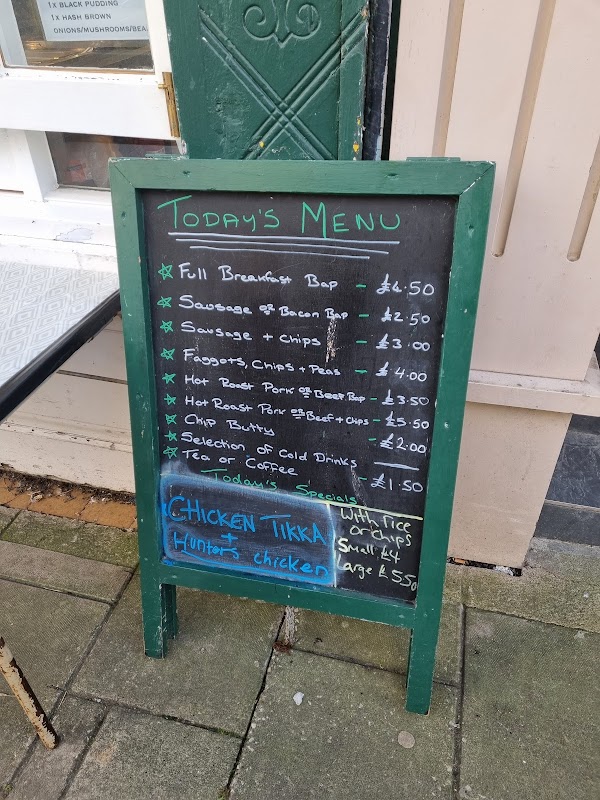 1X BLACK PUDDING
1X HASH BROWN
ONIONS/MUSHROOMS/BEA
TODAY'S MENU
Full Breakfast Bap - £4.50
Sausage OR Bacon Bap - £2.50
Sausage + Chips - £3.00
Faggots, Chips + Peas - £4.00
Hot Roast Pork OR Beef Bap - £3.50
Hot Roast Pork OR Beef + chips - £5.50
Chip Butty - £2.00
Selection of Cold Drinks
Tea or Coffee - £1.50
Today's Specials
CHICKEN TIKKA
+
Hunters chicken
With rice
or chips
Small £4
Large £5.50